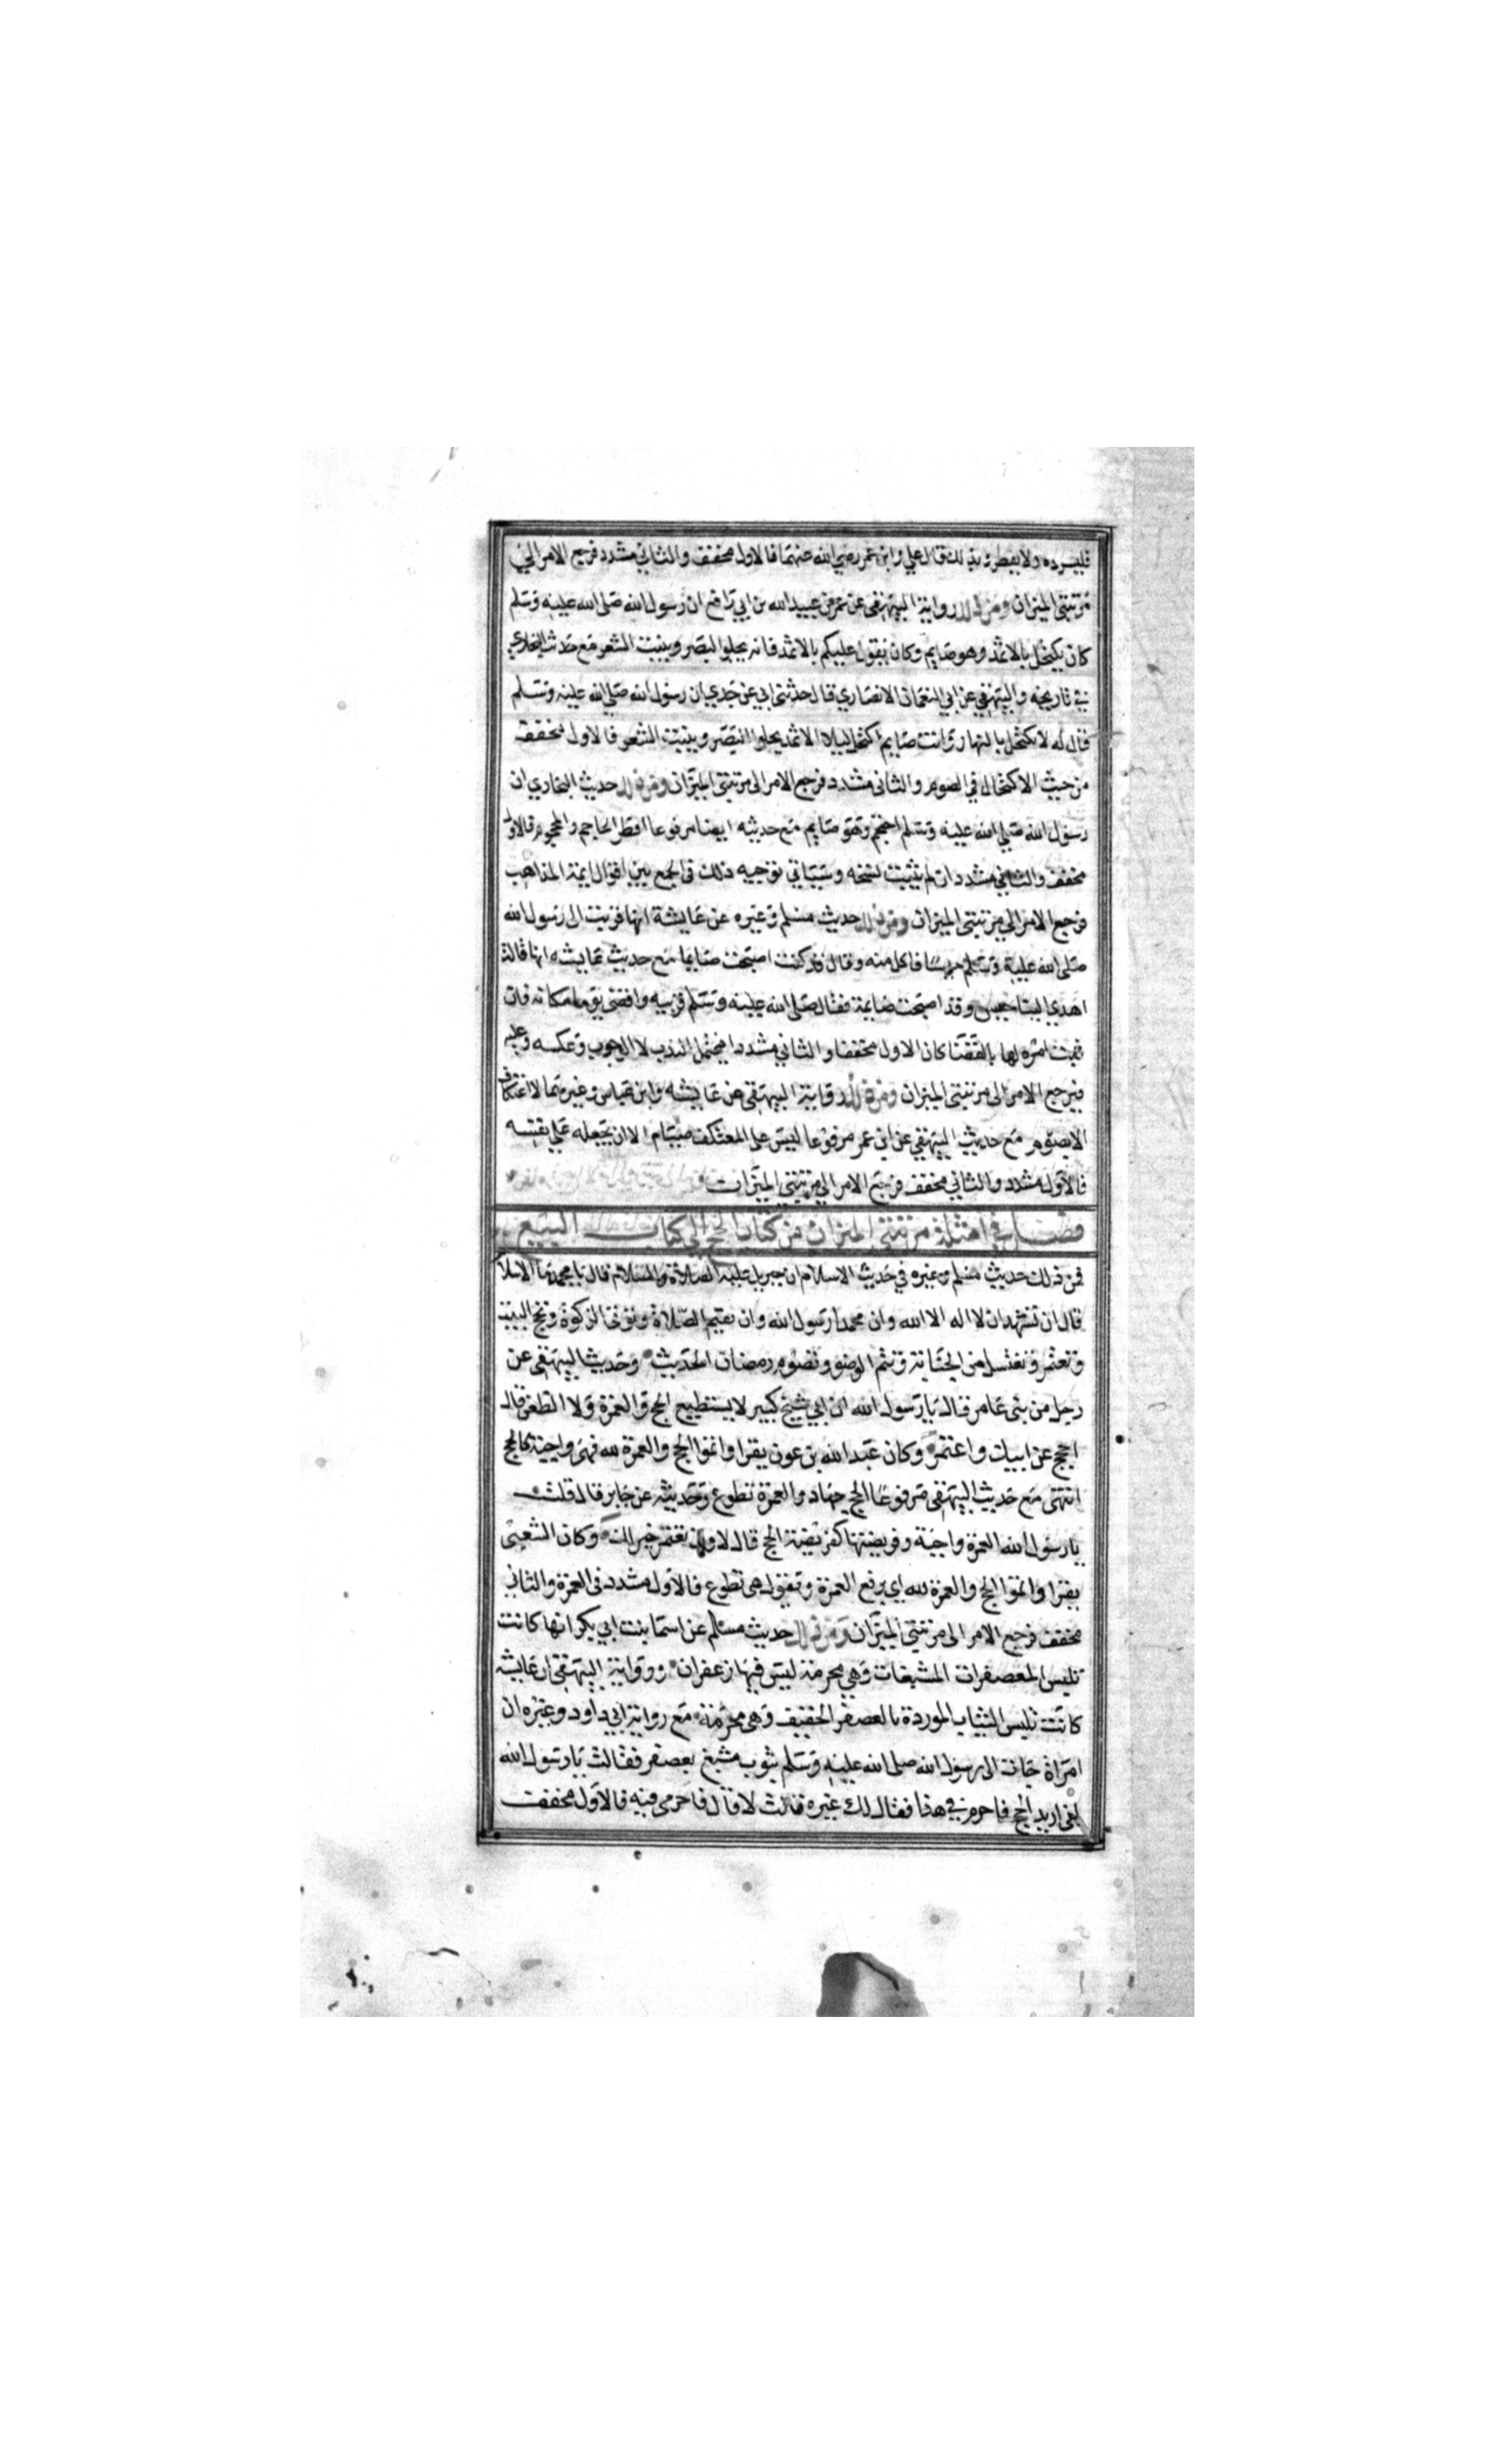 فليسرده ولا يفطر وبذلك قال علي وابن عمر رضي الله عنهما فالاول مخفف والثاني مشدد فرجع الامر الي
مرتبتي الميزان ومن ذلك رواية البيهقي عن عمر بن عبيد الله بن ابي رافع ان رسول الله صلى الله عليه وسلم
كان يكتحل بالاثمد وهو صايم وكان يقول عليكم بالاثمد فانه يجلوا البصر وينبت الشعر مع حديث البخاري
في تاريخه والبيهقي عن ابي النعمان الانصاري قال حدثني ابي عن جدي ان رسول الله صلي الله عليه وسلم
قال له لا تكتحل بالنهار وانت صايم اكتحل ليلا الاثمد يجلوا البصر وينبت الشعر فالاول مخفف
من حيث الاكتحال في الصوم والثاني مشدد فرجع الامر الى مرتبتي الميزان ومن ذلك حديث البخاري ان
رسول الله صلي الله عليه وسلم احتجم وهو صايم مع حديثه ايضا مرفوعا افطر الحاجم والمحجوم فالاول
مخفف والثاني مشدد ان لم يثبت نسخه وسياتي توجيه ذلك في الجمع بين اقوال ايمة المذاهب
فرجع الامر الي مرتبتي الميزان ومن ذلك حديث مسلم وغيره عن عايشة انها قربت الى رسول الله
صلى الله عليه وسلم حيسا فاكل منه وقال قد كنت اصبحت صايما مع حديث عايشه انها قالت
اهدي لينا حيس وقد اصبحت صايمة فقال صلى الله عليه وسلم قربيه واقضى يوما مكانه فان
ثبت امره لها بالقضا كان الاول مخففا والثاني مشددا فيحتمل الندب لا الوجوب وعكسه وعليه
فيرجع الامر الى مرتبتي الميزان ومن ذلك رواية البيهقي عن عايشه وابن عباس وغيرهما لا اعتكاف
الا بصوم مع حديث البيهقي عن ابن عمر مرفوعا ليس على المعتكف صيام الا ان يجعله علي نفسه
فالاول مشدد والثاني مخفف فرجع الامر الي مرتبتي الميزان
فصل في امثلة مرتبتي الميزان من كتاب الحج الي كتاب البيع
فمن ذلك حديث مسلم وغيره في حديث الاسلام ان جبريل عليه الصلاة والسلام قال يا محمد ما الاسلام
قال ان تشهد ان لا اله الا الله وان محمدا رسول الله وان تقيم الصلاة وتوتى الزكوة وتحج البيت
وتعتمر وتغتسل من الجنابة وتتم الوضو وتصوم رمضان الحديث وحديث البيهقي عن
رجل من بني عامر قال يا رسول الله ان ابي شيخ كبير لا يستطيع الحج والعمرة ولا الظعن قال
احجج عن ابيك واعتمر وكان عبد الله بن عون يقرا واتموا الحج والعمرة لله فهى واجبة كالحج
انتهى مع حديث البيهقي مرفوعا الحج جهاد والعمرة تطوع وحديثه عن جابر قال قلت
يا رسول الله العمرة واجبة وفريضتها كفريضة الحج قال لا وان تعتمر خير لك وكان الشعبى
يقرا واتموا الحج والعمرة لله اي برفع العمرة ويقول هى تطوع فالاول مشدد في العمرة والثاني
مخفف فرجع الامر الى مرتبتي الميزان ومن ذلك حديث مسلم عن اسما بنت ابي بكر انها كانت
تلبس المعصفرات المشبعات وهي محرمة ليس فيها زعفران ورواية البيهقي ان عايشه
كانت تلبس الثياب الموردة بالعصفر الخفيف وهي محرمة مع رواية ابي داود وغيره ان
امراة جات الى رسول الله صلى الله عليه وسلم بثوب مشبع بعصفر فقالت يا رسول الله
اني اريد الحج فاحرم في هذا فقال لك غيره قالت لا قال فاحرمى فيه فالاول مخفف